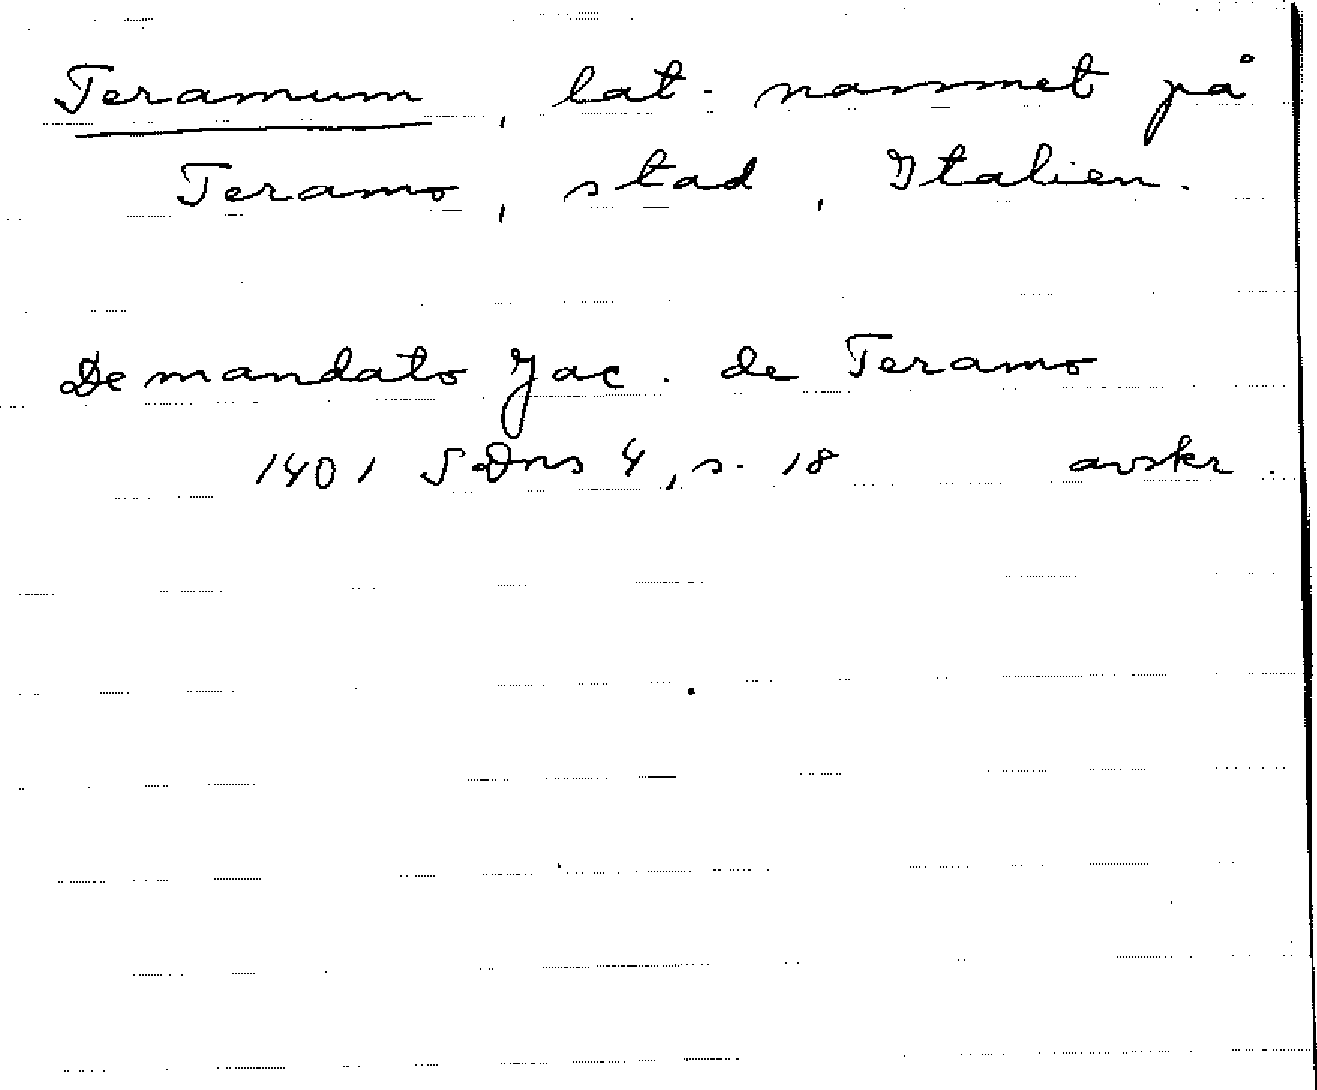 Teramum, lat. namnet på
Teramo, stad, Italien.
De mandato Jac. de Teramo
1401 SDns 4, s. 18 avskr.